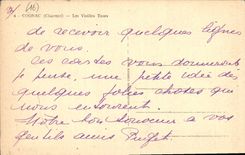 (16)
4 - COGNAC (Charente) - Les Vieilles Tours
de recevoir quelques lignes
de vous.
Ces cartes vous donneront
je pense, une petite idée des
quelques jolies choses qui
nous entourent.
Notre bon souvenir à vos
gentils amis